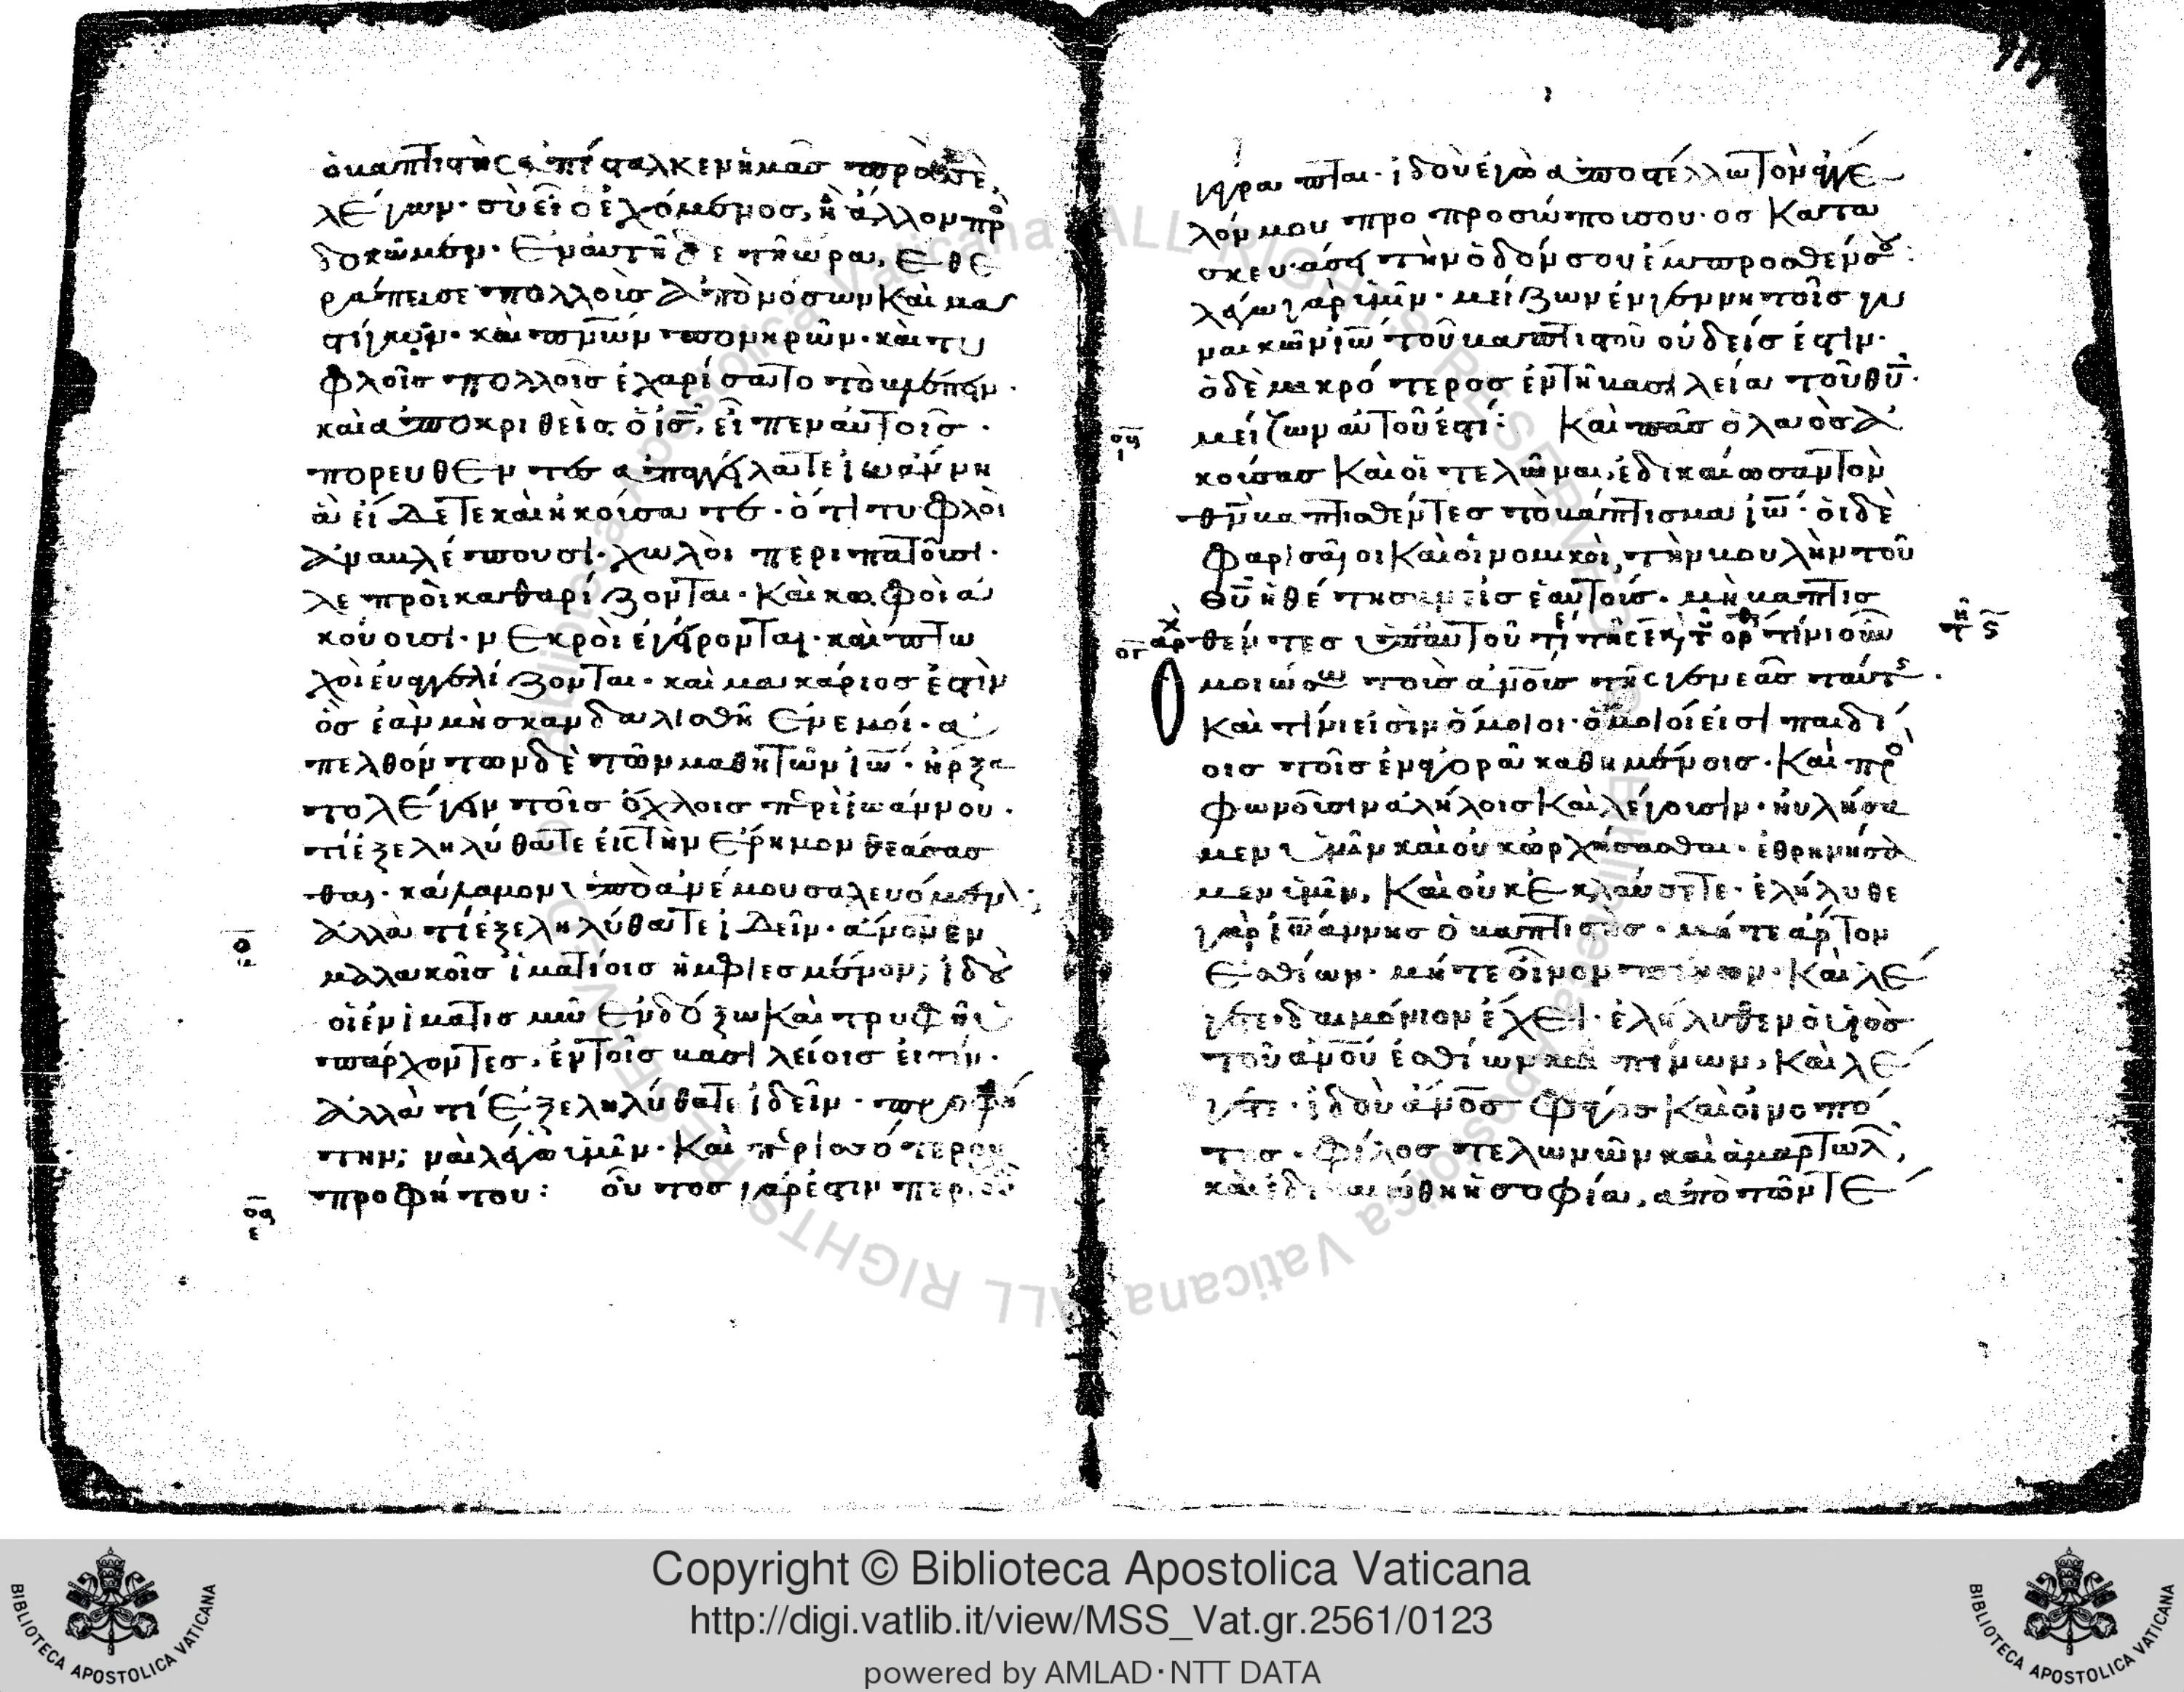 ὁ βαπτιστὴς ἀπέσταλκεν ἡμᾶς πρὸς σὲ,
λέγων· σὺ εἶ ὁ ἐρχόμενος, ἢ ἄλλον πρ
δοκῶμεν· ἐν αὐτῆ δὲ τῆ ὥρα, ἐθε
ράπευσε πολλοὺς ἀπὸ νόσων καὶ μασ
τίγων· καὶ πνων πονηρῶν· καὶ τυ
φλοῖς πολλοῖς ἐχαρίσατο τὸ βλέπειν·
καὶ ἀποκριθεὶς ὁ ις, εἶπεν αὐτοῖς·
πορευθέντες ἀπαγγείλατε ἰωάννη
ἃ εἴδετε καὶ ἠκούσατε· ὅτι τυφλοὶ
ἀναβλέπουσι· χωλοὶ περιπατοῦσι·
λεπροὶ καθαρίζονται· καὶ κωφοὶ ἀ
κούουσι· νεκροὶ ἐγείρονται· καὶ πτω
χοὶ εὐαγγελίζονται· καὶ μακάριος ἐστὶν
ὃς ἐὰν μὴ σκανδαλισθῆ ἐν ἐμοί· ἀ
πελθόντων δὲ τῶν μαθητῶν ιω· ἤρξα
το λέγειν τοῖς ὄχλοις περὶ ἰωάννου·
τί ἐξεληλύθατε εἰς τὴν ἔρημον θεάσασ
θαι· κάλαμον ὑπὸ ἀνέμου σαλευόμενον;
ἀλλὰ τί ἐξεληλύθατε ἰδεῖν· ανον ἐν
μαλακοῖς ἱματίοις ἠμφιεσμένον; ἰδοὺ
οἱ ἐν ἱματισμῶ ἐνδόξω καὶ τρυφῆ ὑ
πάρχοντες, ἐν τοῖς βασιλείοις εἰσίν·
ἀλλὰ τί ἐξεληλύθατε ἰδεῖν· προφή
την; ναὶ λέγω ὑμῖν· καὶ περισσότερον
προφήτου: οὗτος γάρ ἐστιν περὶ οὗ
γέγραπται· ἰδοὺ ἐγὼ ἀποστέλλω τὸν ἄγγε
λόν μου προ προσώπου σου· ὃς κατα
σκευάσει τὴν ὁδόν σου ἔμπροσθέν σου:
λέγω γὰρ ὑμῖν· μείζων ἐν γεννητοῖς γυ
ναικῶν ιω τοῦ βαπτιστοῦ οὐδείς ἐστιν·
ὁ δὲ μικρότερος ἐν τῆ βασιλεία τοῦ θυ·
μείζων αὐτοῦ ἐστι: καὶ πᾶς ὁ λαὸς ἀ
κούσας καὶ οἱ τελῶναι, ἐδικαίωσαν τὸν
θν βαπτισθέντες τὸ βάπτισμα ιω· οἱ δὲ
φαρισαῖοι καὶ οἱ νομικοὶ, τὴν βουλὴν τοῦ
θυ ἠθέτησαν εἰς ἑαυτούς· μὴ βαπτισ
θέντες ὑπ' αὐτοῦ
μοιώσω τοὺς ανους τῆς γενεᾶς ταύτης·
καὶ τίνι εἰσὶν ὅμοιοι· ὅμοιοί εἰσι παιδί
οις τοῖς ἐν ἀγορᾶ καθημένοις· καὶ προ
φωνοῦσιν ἀλλήλοις καὶ λέγουσιν· ηὐλήσα
μεν ὑμῖν καὶ οὐκ ὠρχήσασθαι· ἐθρηνήσα
μεν ὑμῖν, καὶ οὐκ ἐκλαύσατε· ἐλήλυθε
γὰρ ἰωάννης ὁ βαπτιστὴς· μήτε ἄρτον
ἐσθίων· μήτε οἶνον πίνων· καὶ λέ
γετε· δαιμόνιον ἔχει· ἐλήλυθεν ὁ υἱὸς
τοῦ ανου ἐσθίων καὶ πίνων, καὶ λέ
γετε· ἰδοὺ ανος φάγος καὶ οἰνοπό
της· φίλος τελωνῶν καὶ ἁμαρτωλῶν,
καὶ ἐδικαιώθη ἡ σοφία, ἀπὸ τῶν τέ
Copyright © Biblioteca Apostolica Vaticana
http://digi.vatlib.it/view/MSS_Vat.gr.2561/0123
powered by AMLAD·NTT DATA
BIBLIOTECA APOSTOLICA VATICANA
BIBLIOTECA APOSTOLICA VATICANA